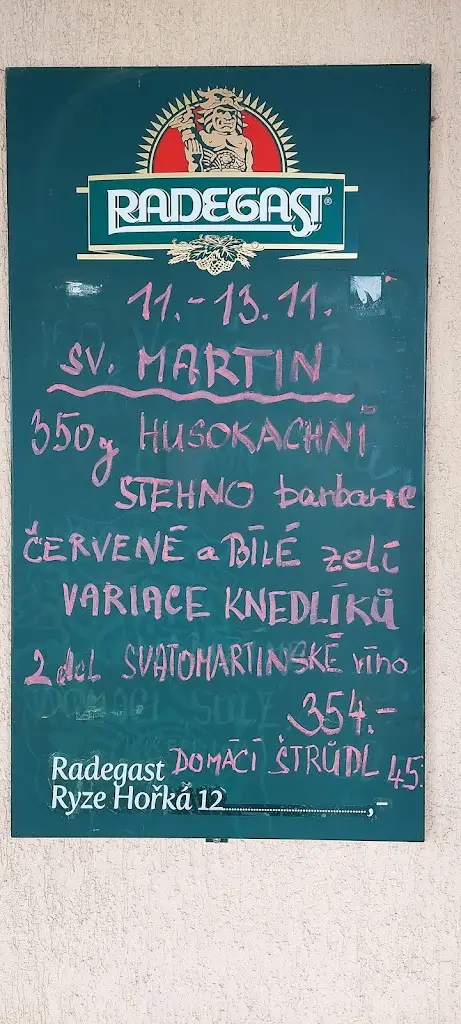 RADEGAST
11.-13.11.
SV. MARTIN
350g HUSOKACHNÍ
STEHNO barbarie
ČERVENÉ a BÍLÉ zelí
VARIACE KNEDLÍKŮ
2 dcl SVATOMARTINSKÉ víno
354.-
DOMÁCÍ ŠTRŮDL 45.
Radegast
Ryze Hořká 12 ,-